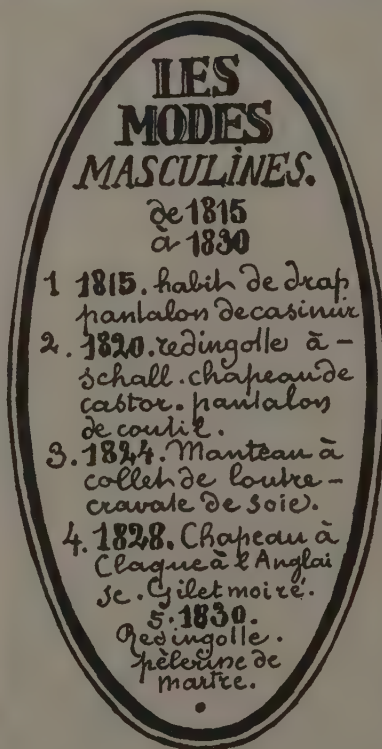 LES
MODES
MASCULINES.
de 1815
à 1830
1 1815. habit de drap
pantalon de casimir
2. 1820. redingotte à -
schall. chapeau de
castor. pantalon
de coutil.
3. 1824. Manteau à
collet de loutre -
cravate de soie.
4. 1828. Chapeau à
Claque à l'Anglai
se. Gilet moiré.
5. 1830.
Redingotte.
pèlerine de
martre.